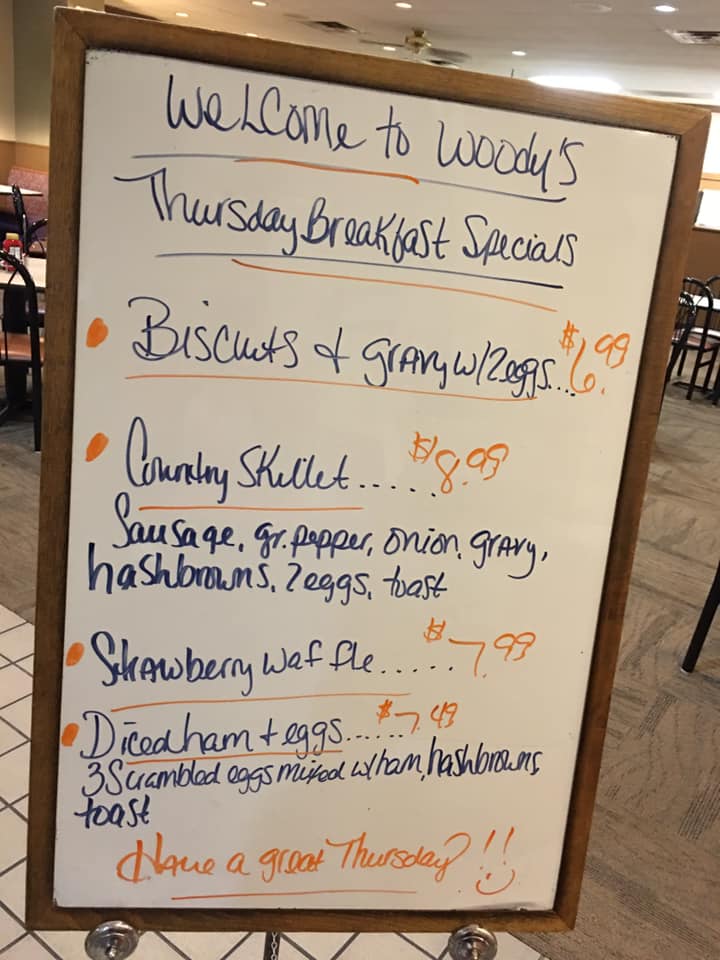 Welcome to Woody's
Thursday Breakfast Specials
Biscuits & gravy w/2eggs... $6.99
Country Skillet..... $8.99
Sausage, gr. pepper, onion, gravy,
hashbrowns, 2eggs, toast
Strawberry waffle..... $7.99
Diced ham & eggs...... $7.49
3 Scrambled eggs mixed w/ham, hashbrowns
toast
Have a great Thursday!!!